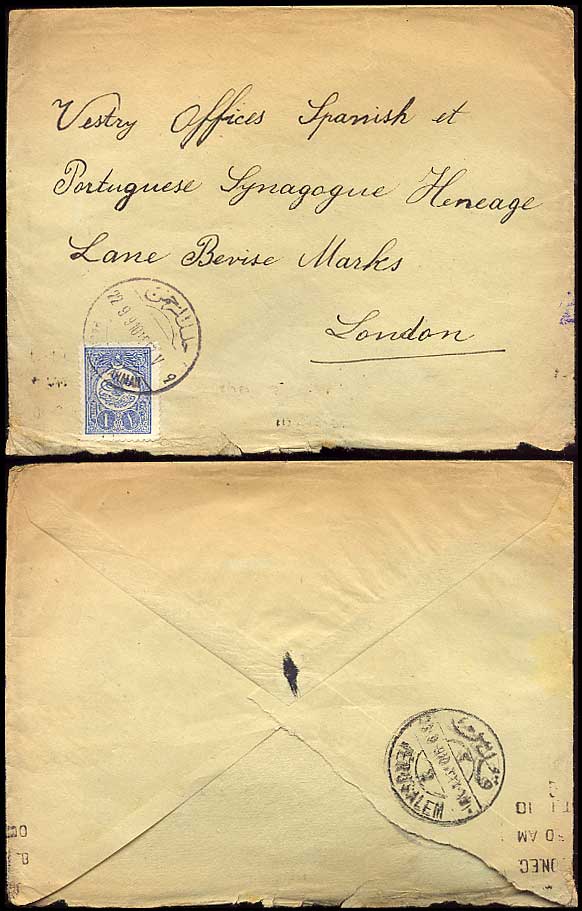 Vestry Offices Spanish et
Portuguese Synagogue Heneage
Lane Bevise Marks
London
22 9 910
1
JERUSALEM
10
AM